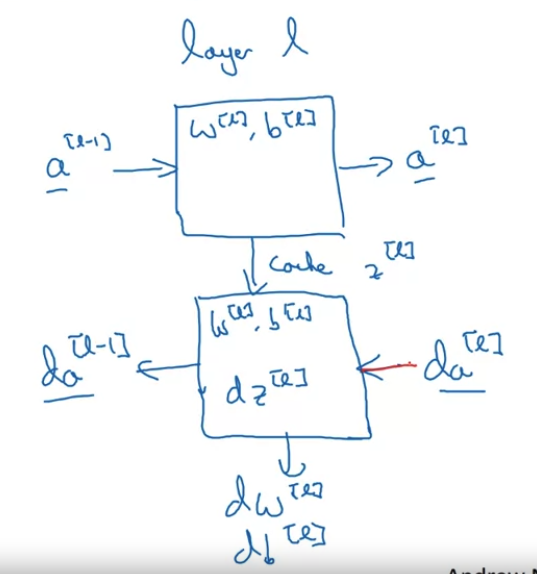 layer l
w^[l], b^[l]
a^[l-1]
a^[l]
cache z^[l]
w^[l], b^[l]
da^[l-1]
da^[l]
dz^[l]
dw^[l]
db^[l]
Andrew